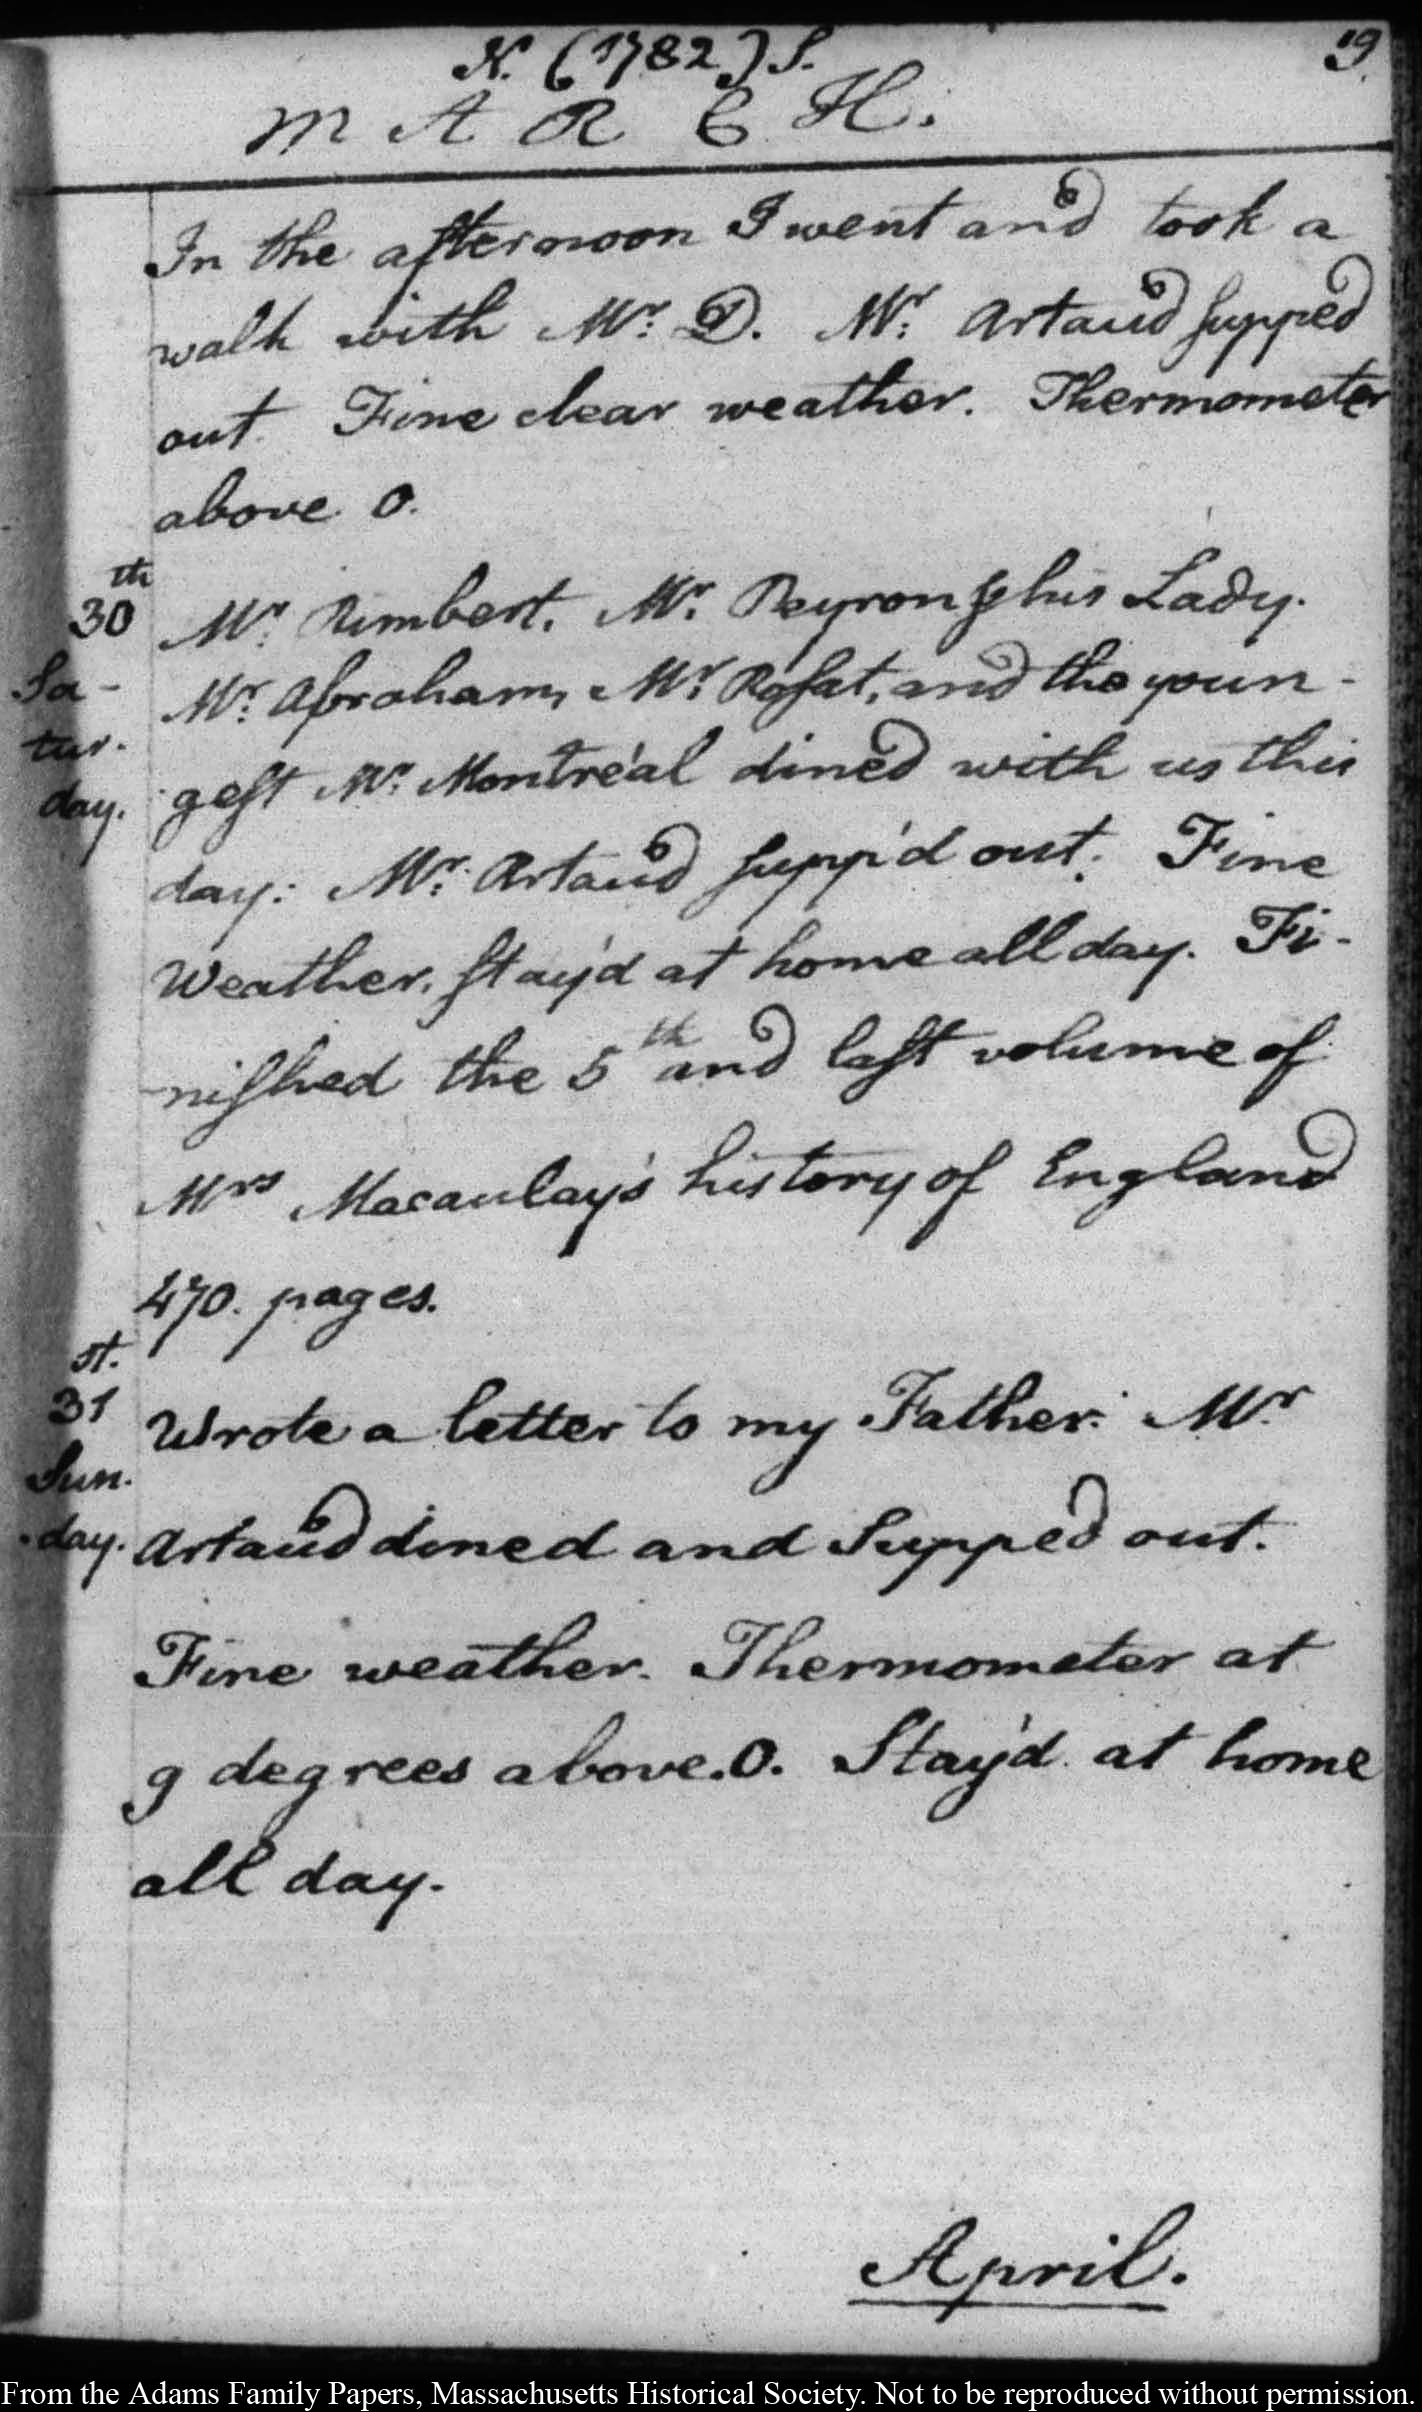 N. (1782) S. 19.
MARCH.
In the afternoon I went and took a
walk with Mr. D. Mr. Artaud supped
out. Fine clear weather. Thermometer
above 0.
30th Mr. Rimbert, Mr. Peyron & his Lady.
Sa- Mr. Abraham, Mr. Rosat, and the youn-
tur- gest Mr. Montréal dined with us this
day. day: Mr. Artaud supp'd out. Fine
Weather, stay'd at home all day. Fi-
-nished the 5th and last volume of
Mrs Macaulay's history of England
470. pages.
31st. Wrote a letter to my Father. Mr
Sun- Artaud dined and Supped out.
-day. Fine weather. Thermometer at
9 degrees above.0. Stay'd at home
all day.
April.
From the Adams Family Papers, Massachusetts Historical Society. Not to be reproduced without permission.